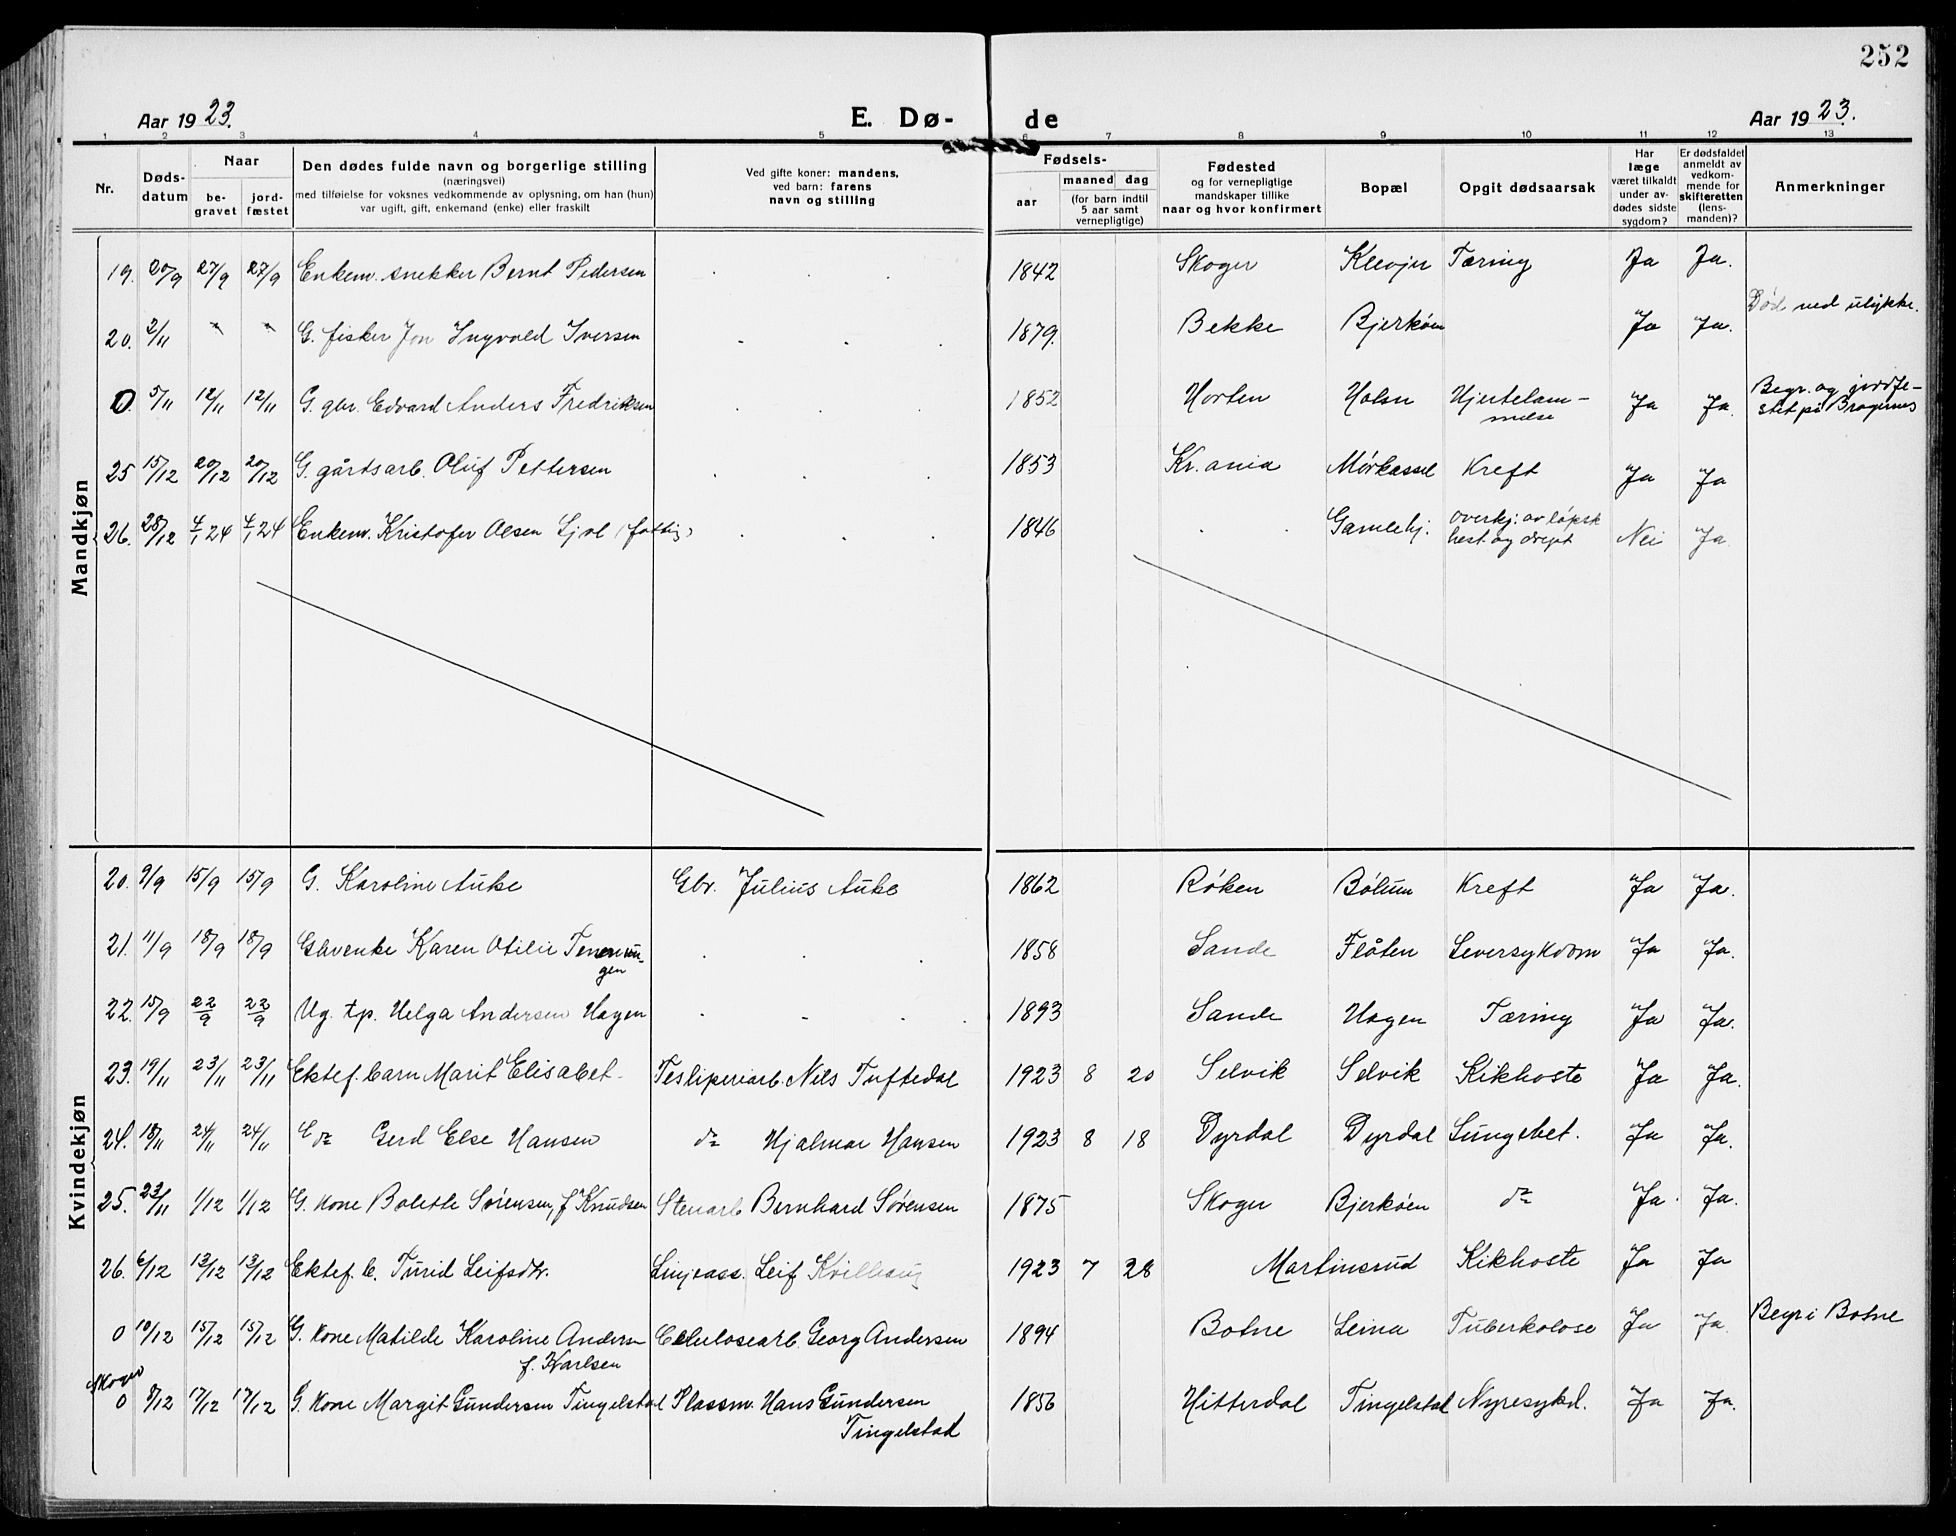 252
Aar 1923. E. Dø- de Aar 1923.
1 2 3 4 5 6 7 8 9 10 11 12 13
Nr. Døds-datum Naar be-gravet jord-fæstet Den dødes fulde navn og borgerlige stilling (næringsvei) med tilføielse for voksnes vedkommende av oplysning, om han (hun) var ugift, gift, enkemand (enke) eller fraskilt Ved gifte koner: mandens, ved barn: farens navn og stilling Fødsels- aar maaned dag (for barn indtil 5 aar samt vernepligtige) Fødested og for vernepligtige mandskaper tillike naar og hvor konfirmert Bopæl Opgit dødsaarsak Har læge været tilkaldt under av-dødes sidste sygdom? Er dødsfaldet anmeldt av vedkom-mende for skifteretten (lens-manden)? Anmerkninger
Mandkjøn
19. 20/9 27/9 27/9 Enkem. snekker Bernt Pedersen 1842 Skoger Klevjer Tæring Ja Ja.
20. 2/11 G. fisker Jon Ingvald Iversen 1879. Bekke Bjerkøen Ja Ja. Død ved ulykke.
0. 5/11 12/11 12/11 G. gbr. Edvard Anders Fredriksen 1852 Horten Holm Hjertelam-melse Ja Ja. Begr. og jordfe-stet på Bragernes
25 15/12 20/12 20/12 G. gårdsarb. Oluf Pettersen 1853 Kr.ania Mørkassel Kreft Ja Ja
26. 28/12 4/1 24 4/1 24 Enkem. Kristofer Olsen (fattig) 1846 Gamlehj. overkj. av løpsk hest og drept Nei Ja
Kvindekjøn
20. 9/9 15/9 15/9 G. Karoline Auke Gbr. Julius Auke 1862 Røken Bølum Kreft Ja Ja.
21. 11/9 18/9 18/9 Gbvenke Karen Otilie 1858 Sande Flåten Leversykdom Ja Ja.
22. 15/9 22/9 22/9 Ug. tp. Helga Andersen Hagen 1893 Sande Hagen Tæring Ja Ja.
23. 19/11 23/11 23/11 Ektef. barn Marit Elisabet Tresliperiarb. Nils Tuftedal 1923 8 20 Selvik Selvik Kikhoste Ja Ja.
24. 18/11 24/11 24/11 E do Gerd Else Hansen do Hjalmar Hansen 1923 8 18 Dyrdal Dyrdal Lungebet. Ja Ja.
25. 23/11 1/12 1/12 G. kone Bolette Sørensen, f Knudsen Stenarb Bernhard Sørensen 1875 Skoger Bjerkøen do Ja Ja.
26. 6/12 13/12 13/12 Ektef. b. Turid Leifsdtr. Linjeass. Leif Kvilhaug 1923 7 28 Martinsrud Kikhoste Ja Ja
0 10/12 15/12 15/12 G. kone Matilde Karoline Andersen f. Karlsen Celulosearb. Georg Andersen 1894 Botne Leina Tuberkolose Ja Ja Begr i Botne
Skoger
0 8/12 17/12 17/12 G. kone Margit Gundersen Tingelstad Plassm. Hans Gundersen Tingelstad 1856 Hitterdal Tingelstad Nyresykd. Ja Ja.